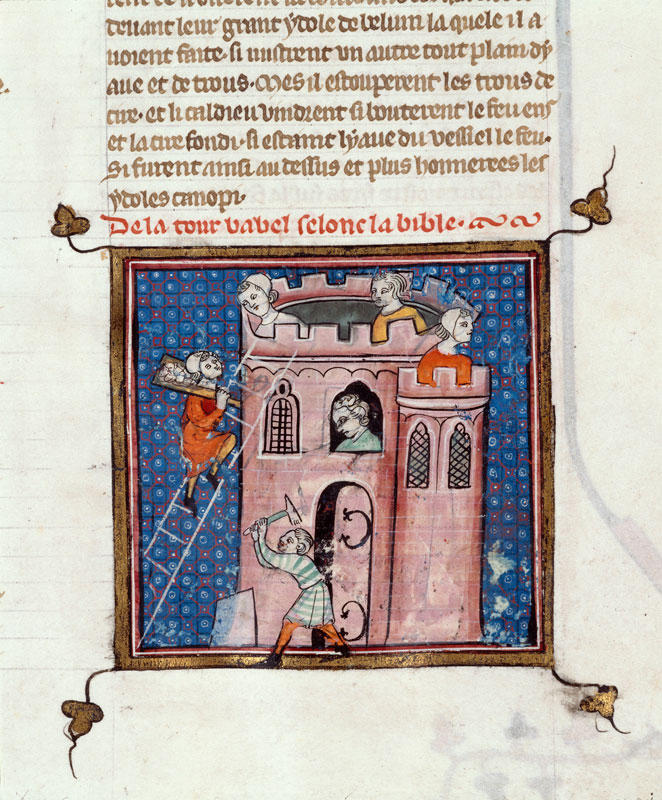 deuant leur grant ydole de belum la quele il a
uoient faite. si mistrent un autre tout plain dy
aue et de trous. Mes il estouperent les trous de
cire. et li caldieu vindrent si bouterent le feu ens
et la cire fondi. si estaint lyaue du vessiel le feu.
Si furent ainsi au dessus et plus honnerees les
ydoles canopi.
De la tour babel selonc la bible.